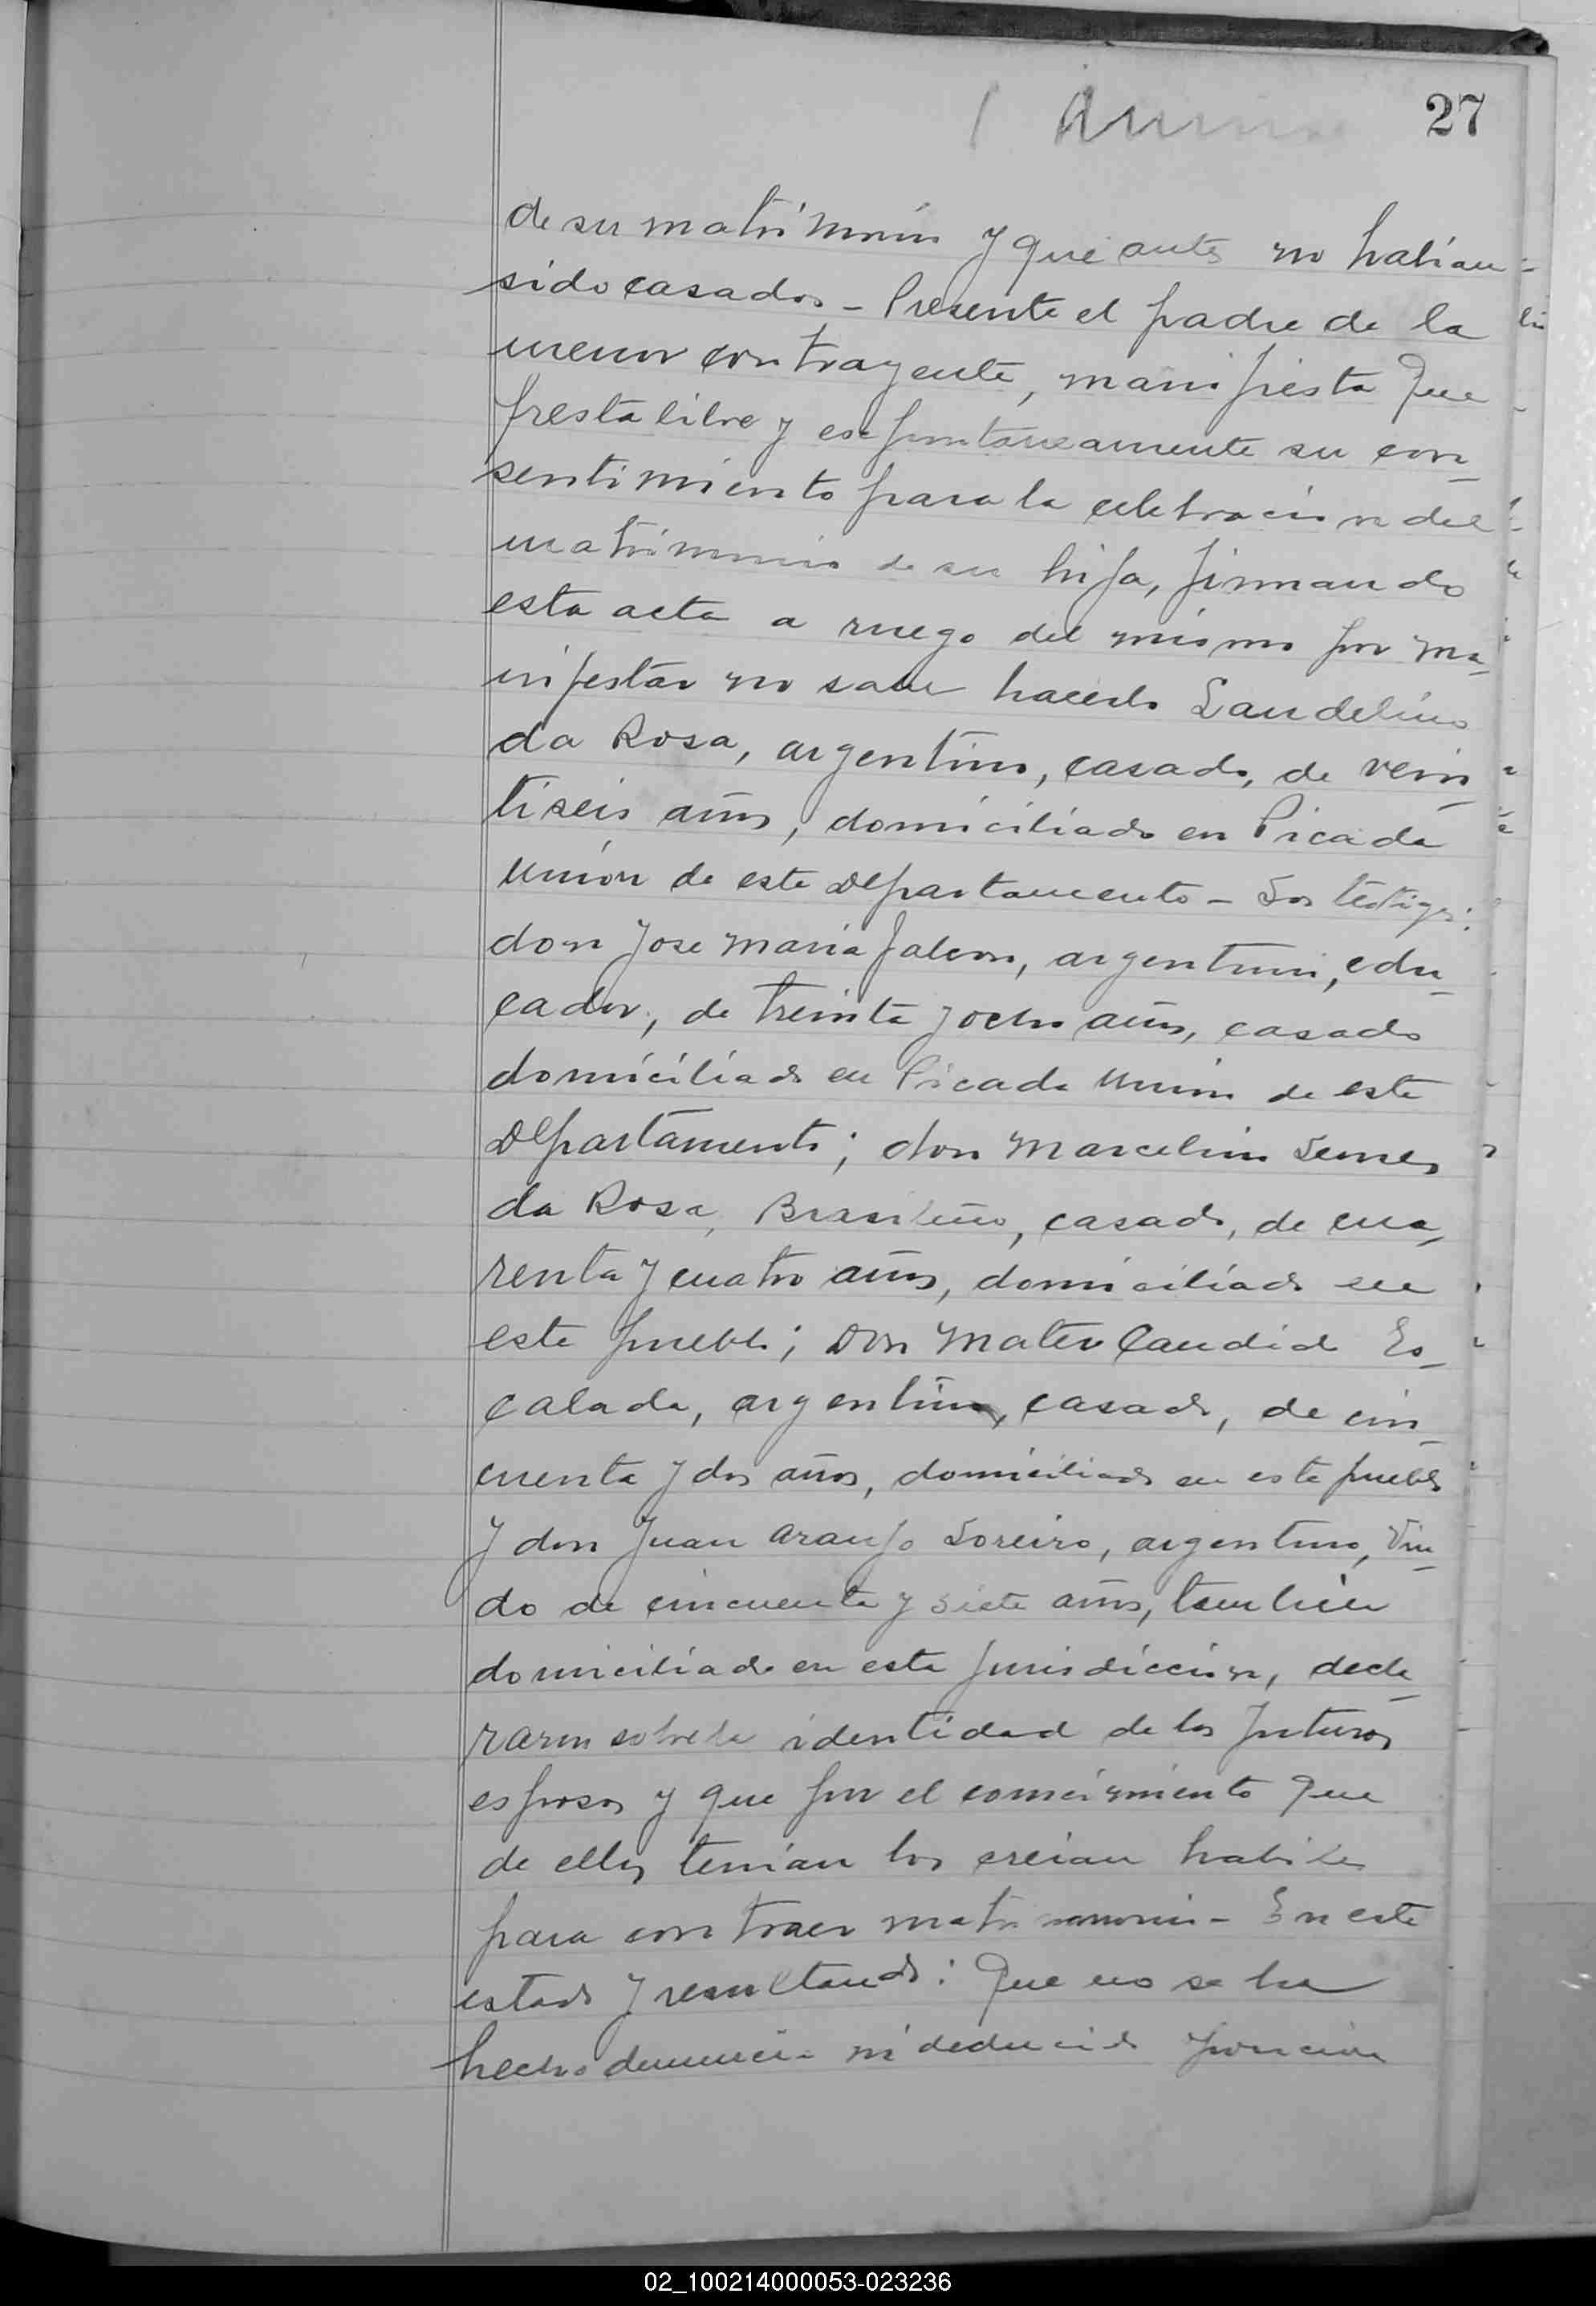 27
de su matrimonio y que antes no habian
sido casados - Presente el padre de la
menor contrayente, manifiesta que
presta libre y espontaneamente su con-
sentimiento para la celebracion del
matrimonio de su hija, firmando
esta acta a ruego del mismo por ma-
nifestar no saber hacerlo Laudelino
da Rosa, argentino, casado, de vein-
tiseis años, domiciliado en Picada
Unión de este Departamento - Los testigos:
don Jose Maria Falcon, argentino, edu-
cador, de treinta y ocho años, casado
domiciliado en Picada Unión de este
Departamento; don Marcelino
da Rosa, Brasileño, casado, de cua-
renta y cuatro años, domiciliado en
este pueblo; Don Mateo Candido Es-
calada, argentino, casado, de cin-
cuenta y dos años, domiciliado en este pueblo
y don Juan Araujo Loreiro, argentino, viu-
do de cincuenta y siete años, tambien
domiciliado en esta jurisdiccion, decla-
raron sobre la identidad de los futuros
esposos y que por el conocimiento que
de ellos tenian los creian habiles
para contraer matrimonio - En este
estado y resultando: Que no se ha
hecho denuncia ni deducido
02_100214000053-023236